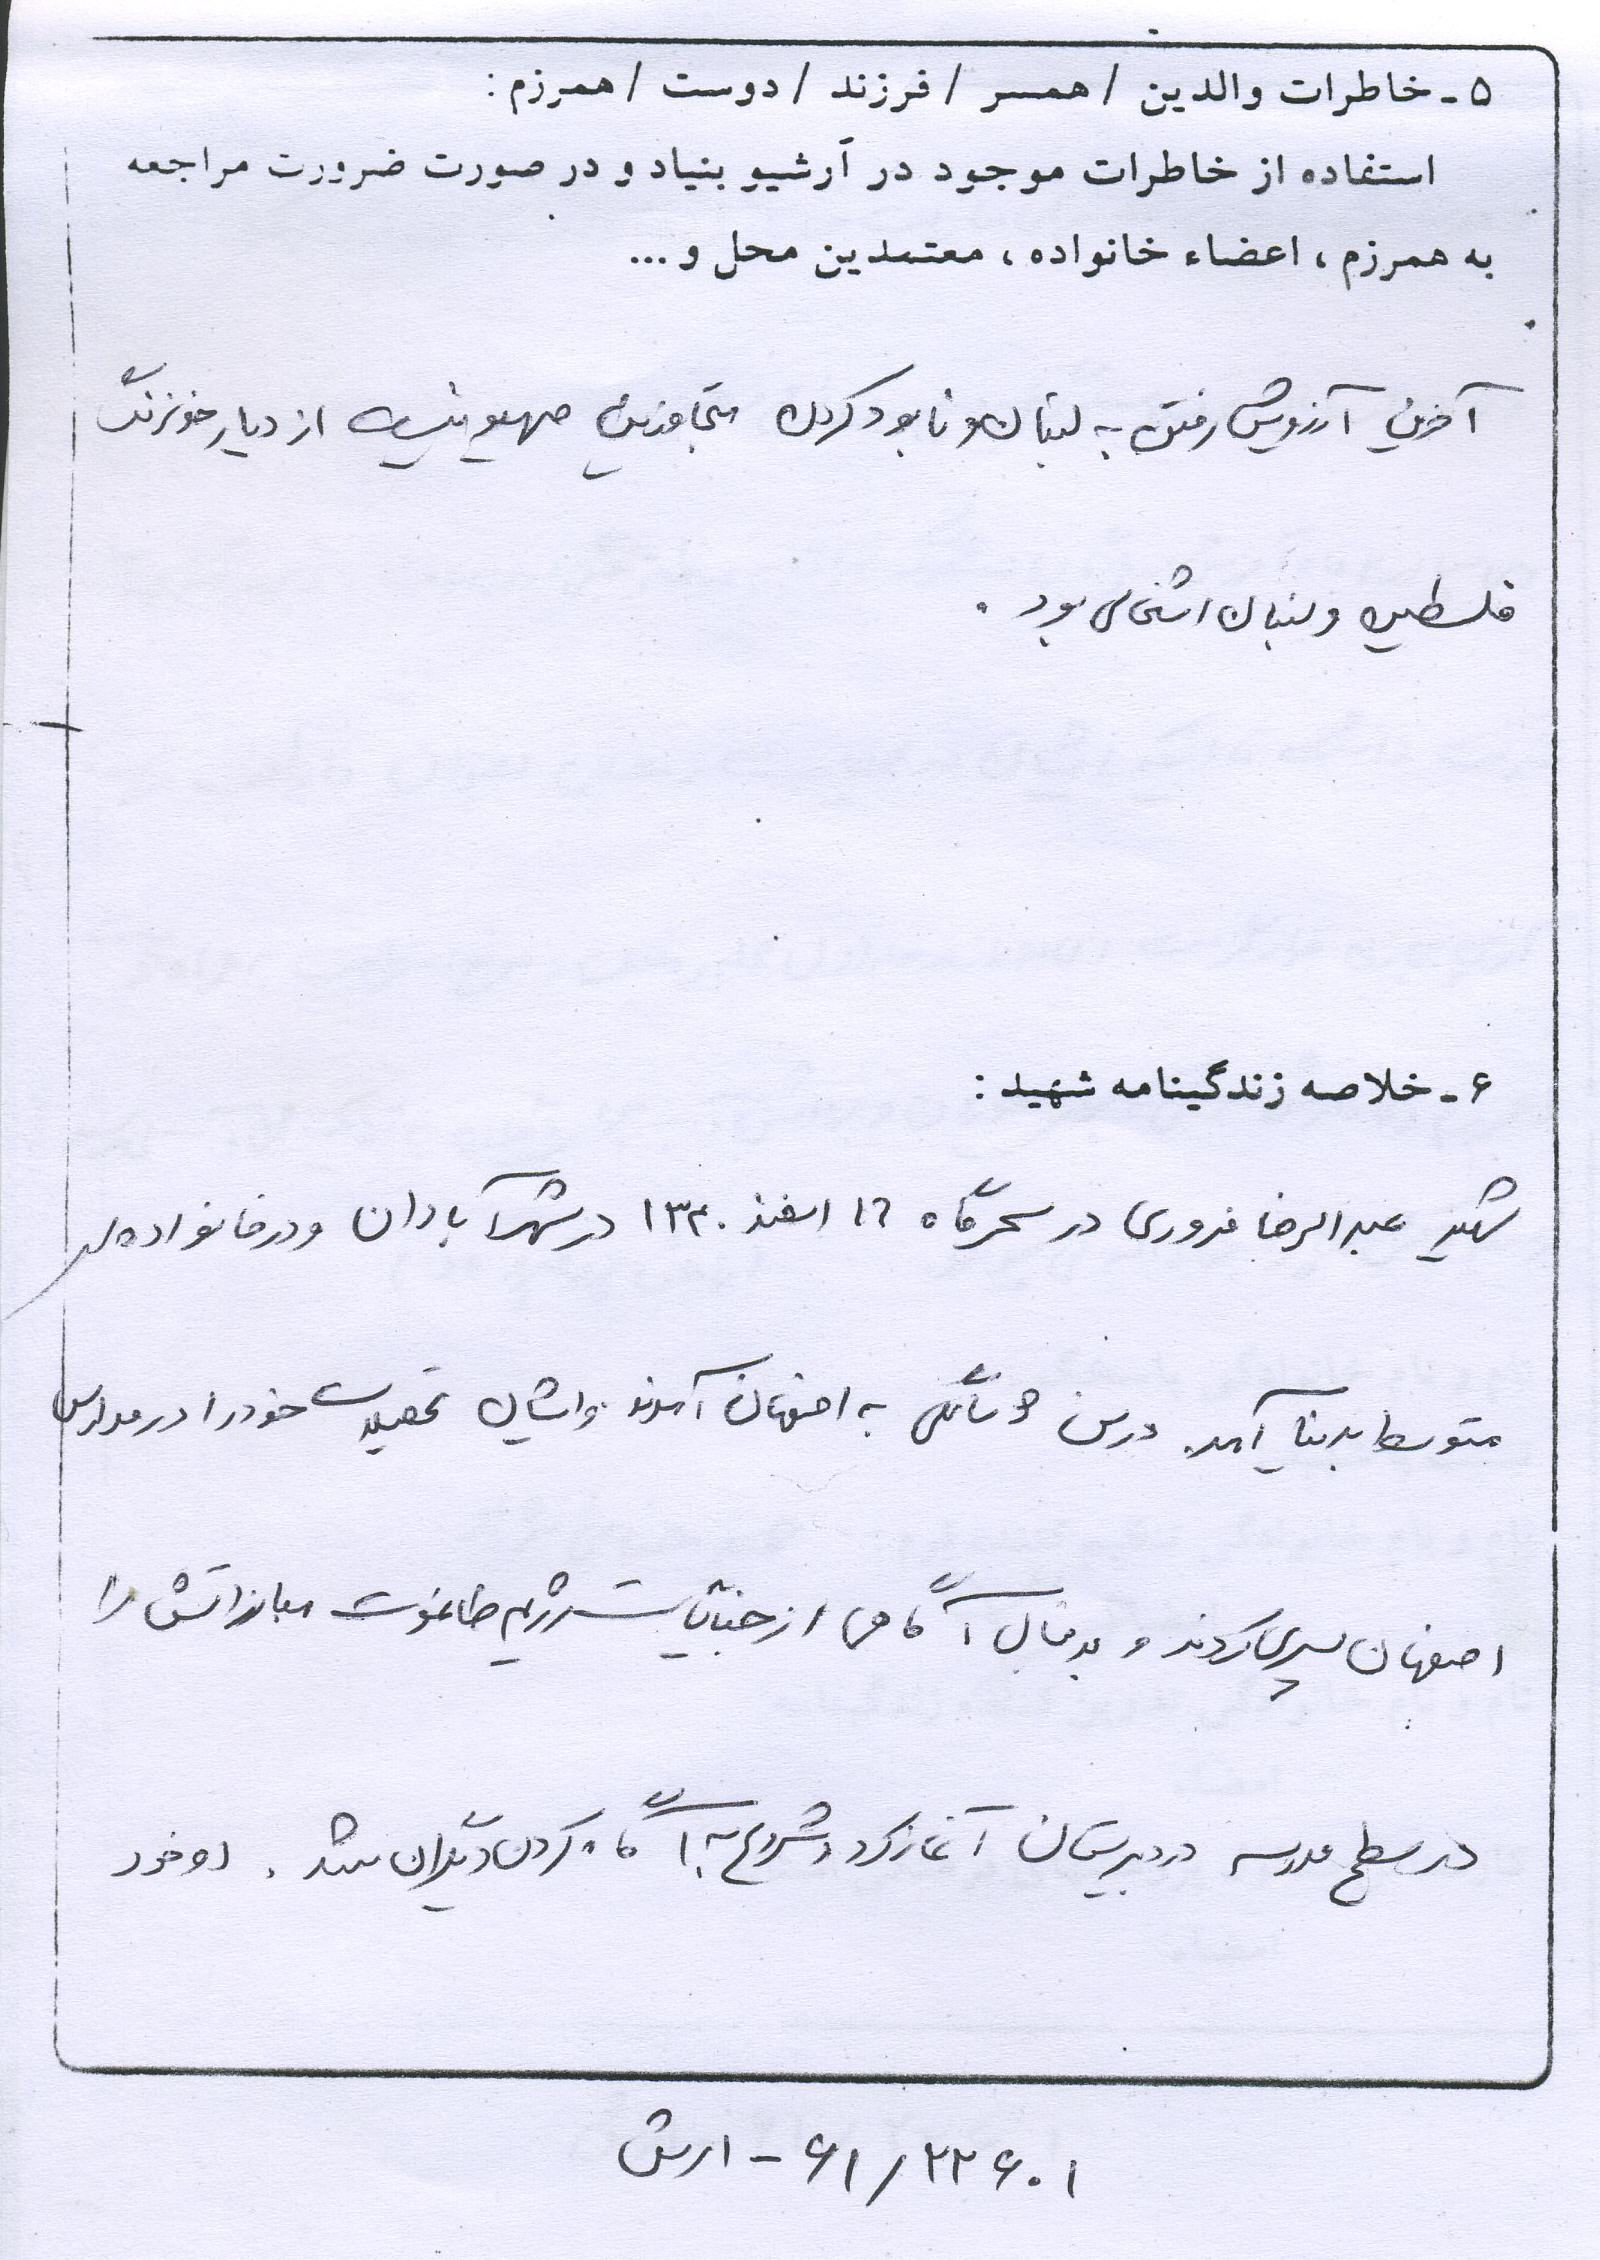 ۵ ـ خاطرات والدین / همسر / فرزند / دوست / همرزم :
استفاده از خاطرات موجود در آرشیو بنیاد و در صورت ضرورت مراجعه
به همرزم ، اعضاء خانواده ، معتمدین محل و ...
آخرین آرزویش رفتن به لبنان و نابود کردن متجاوزین صهیونیست از دیار خونرنگ
فلسطین و لبنان اشغالی بود .
۶ ـ خلاصه زندگینامه شهید :
شهید عبدالرضا فروری در سحرگاه ۱۶ اسفند ۱۳۴۰ در شهر آبادان و در خانواده ای
متوسط بدنیا آمد. در سن ۵ سالگی به اصفهان آمدند وایشان تحصیلات خود را در مدارس
اصفهان سپری کردند و بدنبال آگاهی از جنایات رژیم طاغوت مبارزاتش را
در سطح مدرسه در دبیرستان آغاز کرد و شروع به آگاه کردن دیگران شد . او خود
۶۱/۲۲۶۰۱ - ارش